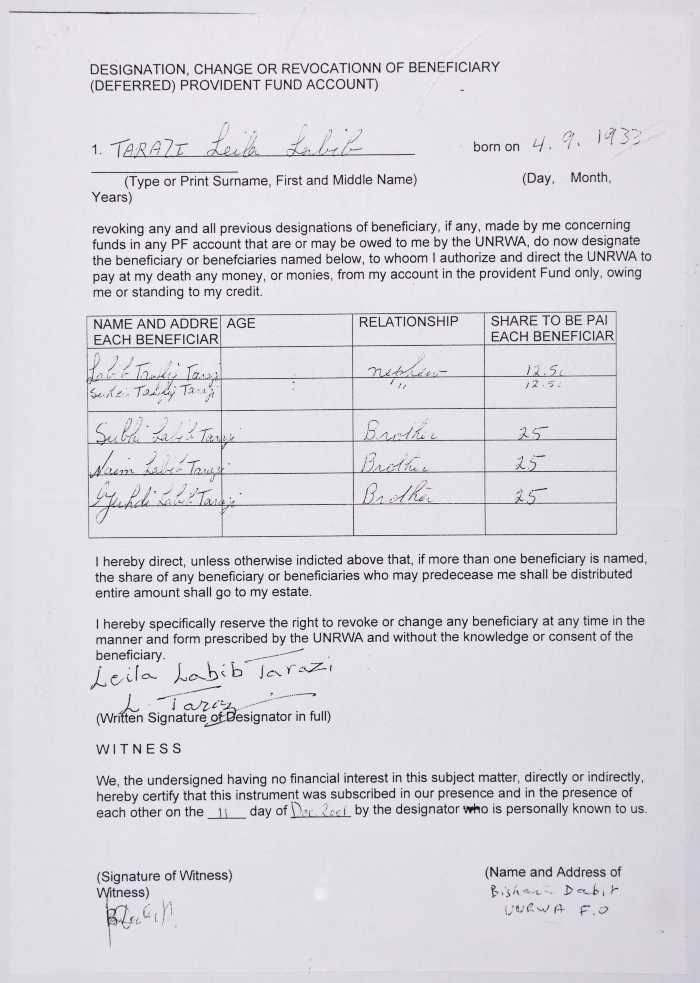 DESIGNATION, CHANGE OR REVOCATIONN OF BENEFICIARY
(DEFERRED) PROVIDENT FUND ACCOUNT)
1. TARAZI Leila Labib born on 4. 9. 1933
(Type or Print Surname, First and Middle Name) (Day, Month,
Years)
revoking any and all previous designations of beneficiary, if any, made by me concerning
funds in any PF account that are or may be owed to me by the UNRWA, do now designate
the beneficiary or benefciaries named below, to whom I authorize and direct the UNRWA to
pay at my death any money, or monies, from my account in the provident Fund only, owing
me or standing to my credit.
NAME AND ADDRE AGE RELATIONSHIP SHARE TO BE PAI
EACH BENEFICIAR EACH BENEFICIAR
Labib Tarazi nephew 12.50
Tarazi " 12.50
Subhi Labib Tarazi Brother 25
Naim Labib Tarazi Brother 25
Labib Tarazi Brother 25
I hereby direct, unless otherwise indicted above that, if more than one beneficiary is named,
the share of any beneficiary or beneficiaries who may predecease me shall be distributed
entire amount shall go to my estate.
I hereby specifically reserve the right to revoke or change any beneficiary at any time in the
manner and form prescribed by the UNRWA and without the knowledge or consent of the
beneficiary.
Leila Labib Tarazi
L Tarazi
(Written Signature of Designator in full)
WITNESS
We, the undersigned having no financial interest in this subject matter, directly or indirectly,
hereby certify that this instrument was subscribed in our presence and in the presence of
each other on the 11 day of Dec. 2001 by the designator who is personally known to us.
(Signature of Witness) (Name and Address of
Witness) Bishara Dabit
UNRWA F.O